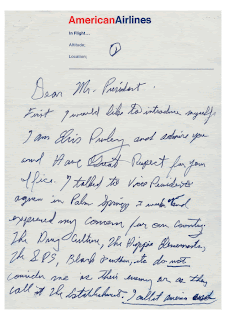 AmericanAirlines
In Flight...
Altitude;
Location;
①
Dear Mr. President.
First I would like to introduce myself.
I am Elvis Presley and admire you
and Have Great Respect for your
office. I talked to Vice President
Agnew in Palm Springs 3 weeks and
expressed my concern for our country.
The Drug Culture, The Hippie Elements,
The SDS, Black Panthers, etc do not
consider me as their enemy or as they
call it the Establishment. I call it America and